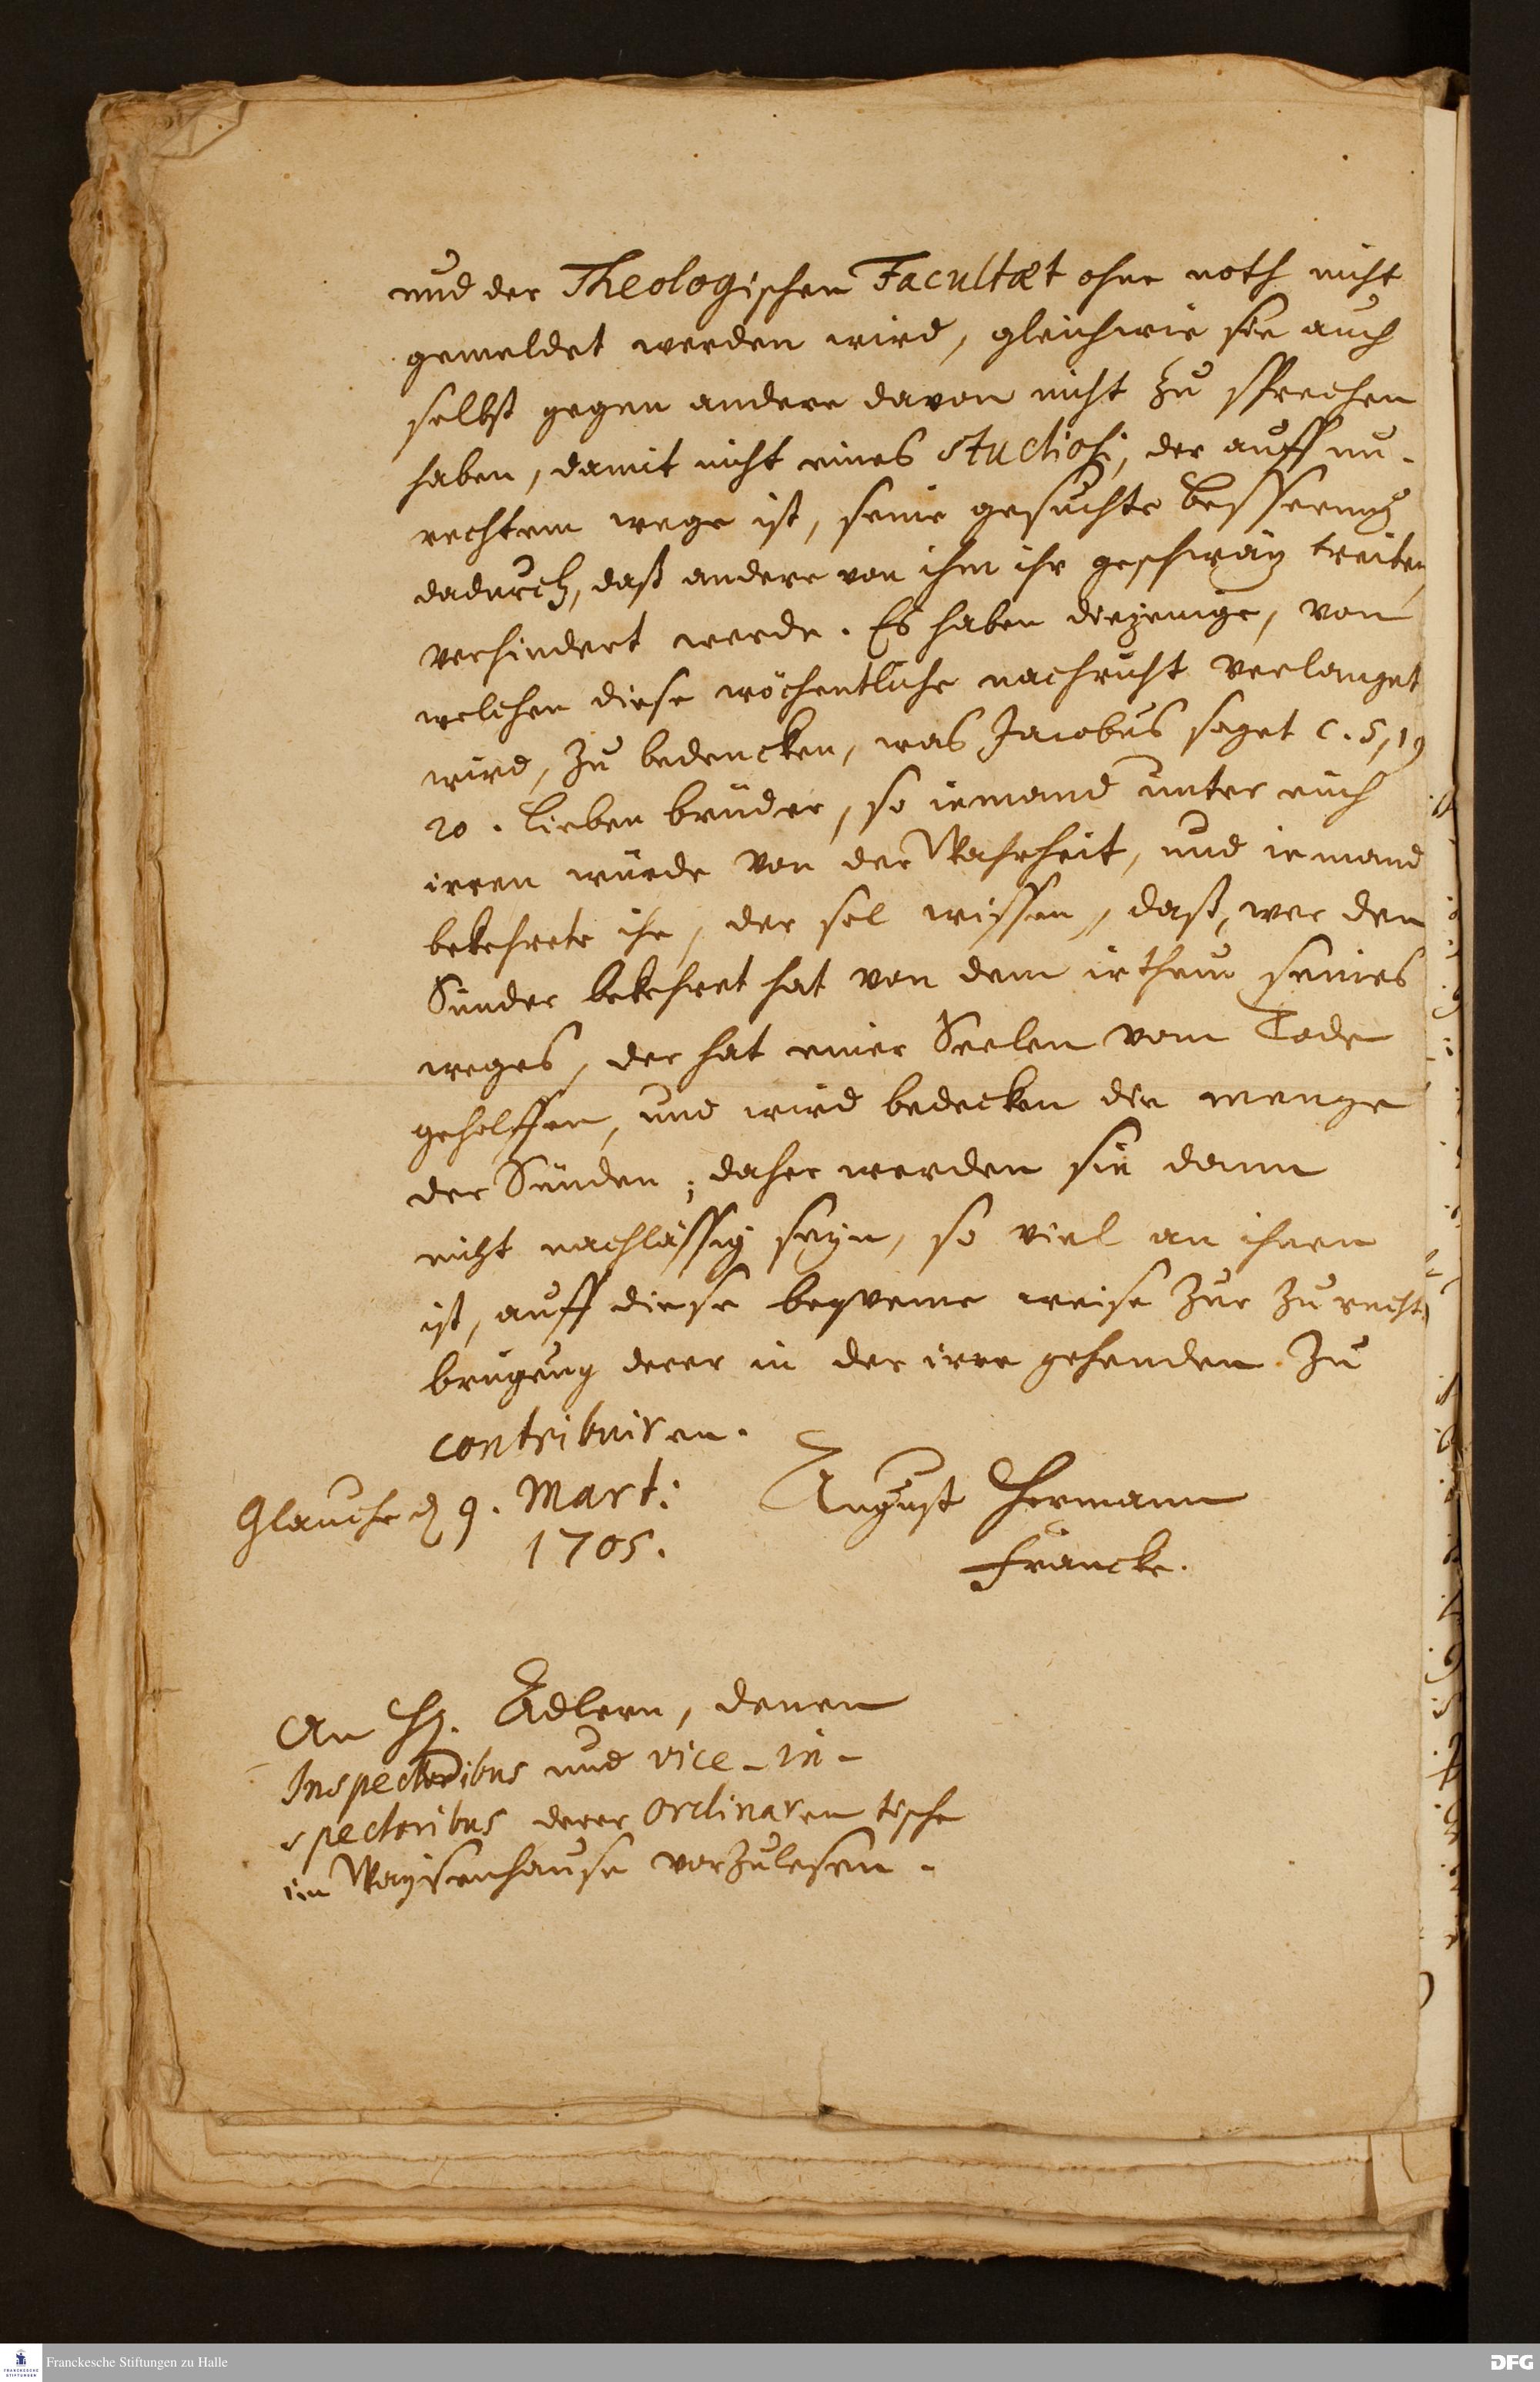 und der Theologischen Facultæt ohne noth nicht
gemeldet werden wird, gleichwie sie auch
selbst gegen andere davon nicht zu sprechen
haben, damit nicht eines Studiosi, der auff un-
rechtem wege ist, seine gesuchte besserung
dadurch, daß andere von ihm ihr geschwätz treiben,
verhindert werde. Es haben diejenige, von
welchen diese wöchentliche nachricht verlanget
wird, zu bedencken, was Jacobus saget c. 5, 19
20. Lieben brüder, so iemand unter euch
irren würde von der Wahrheit, und iemand
bekehrete ihn, der sol wissen, daß, wer den
Sünder bekehret hat von dem irthum seines
weges, der hat einer Seelen vom Tode
geholffen, und wird bedecken die menge
der Sünden; daher werden sie dann
nicht nachlässig seyn, so viel an ihnen
ist, auff diese beqveme weise zur zu recht
bringung derer in der irre gehenden zu
contribuiren.
Glaucha d. 9. Mart:
1705.
August Hermann
Francke.
An H. Adlern, denen
Inspectoribus und vice-in-
spectoribus derer Ordinaren tische
im Waysenhause vorzulesen.
Franckesche Stiftungen zu Halle
FRANCKESCHE
STIFTUNGEN
DFG